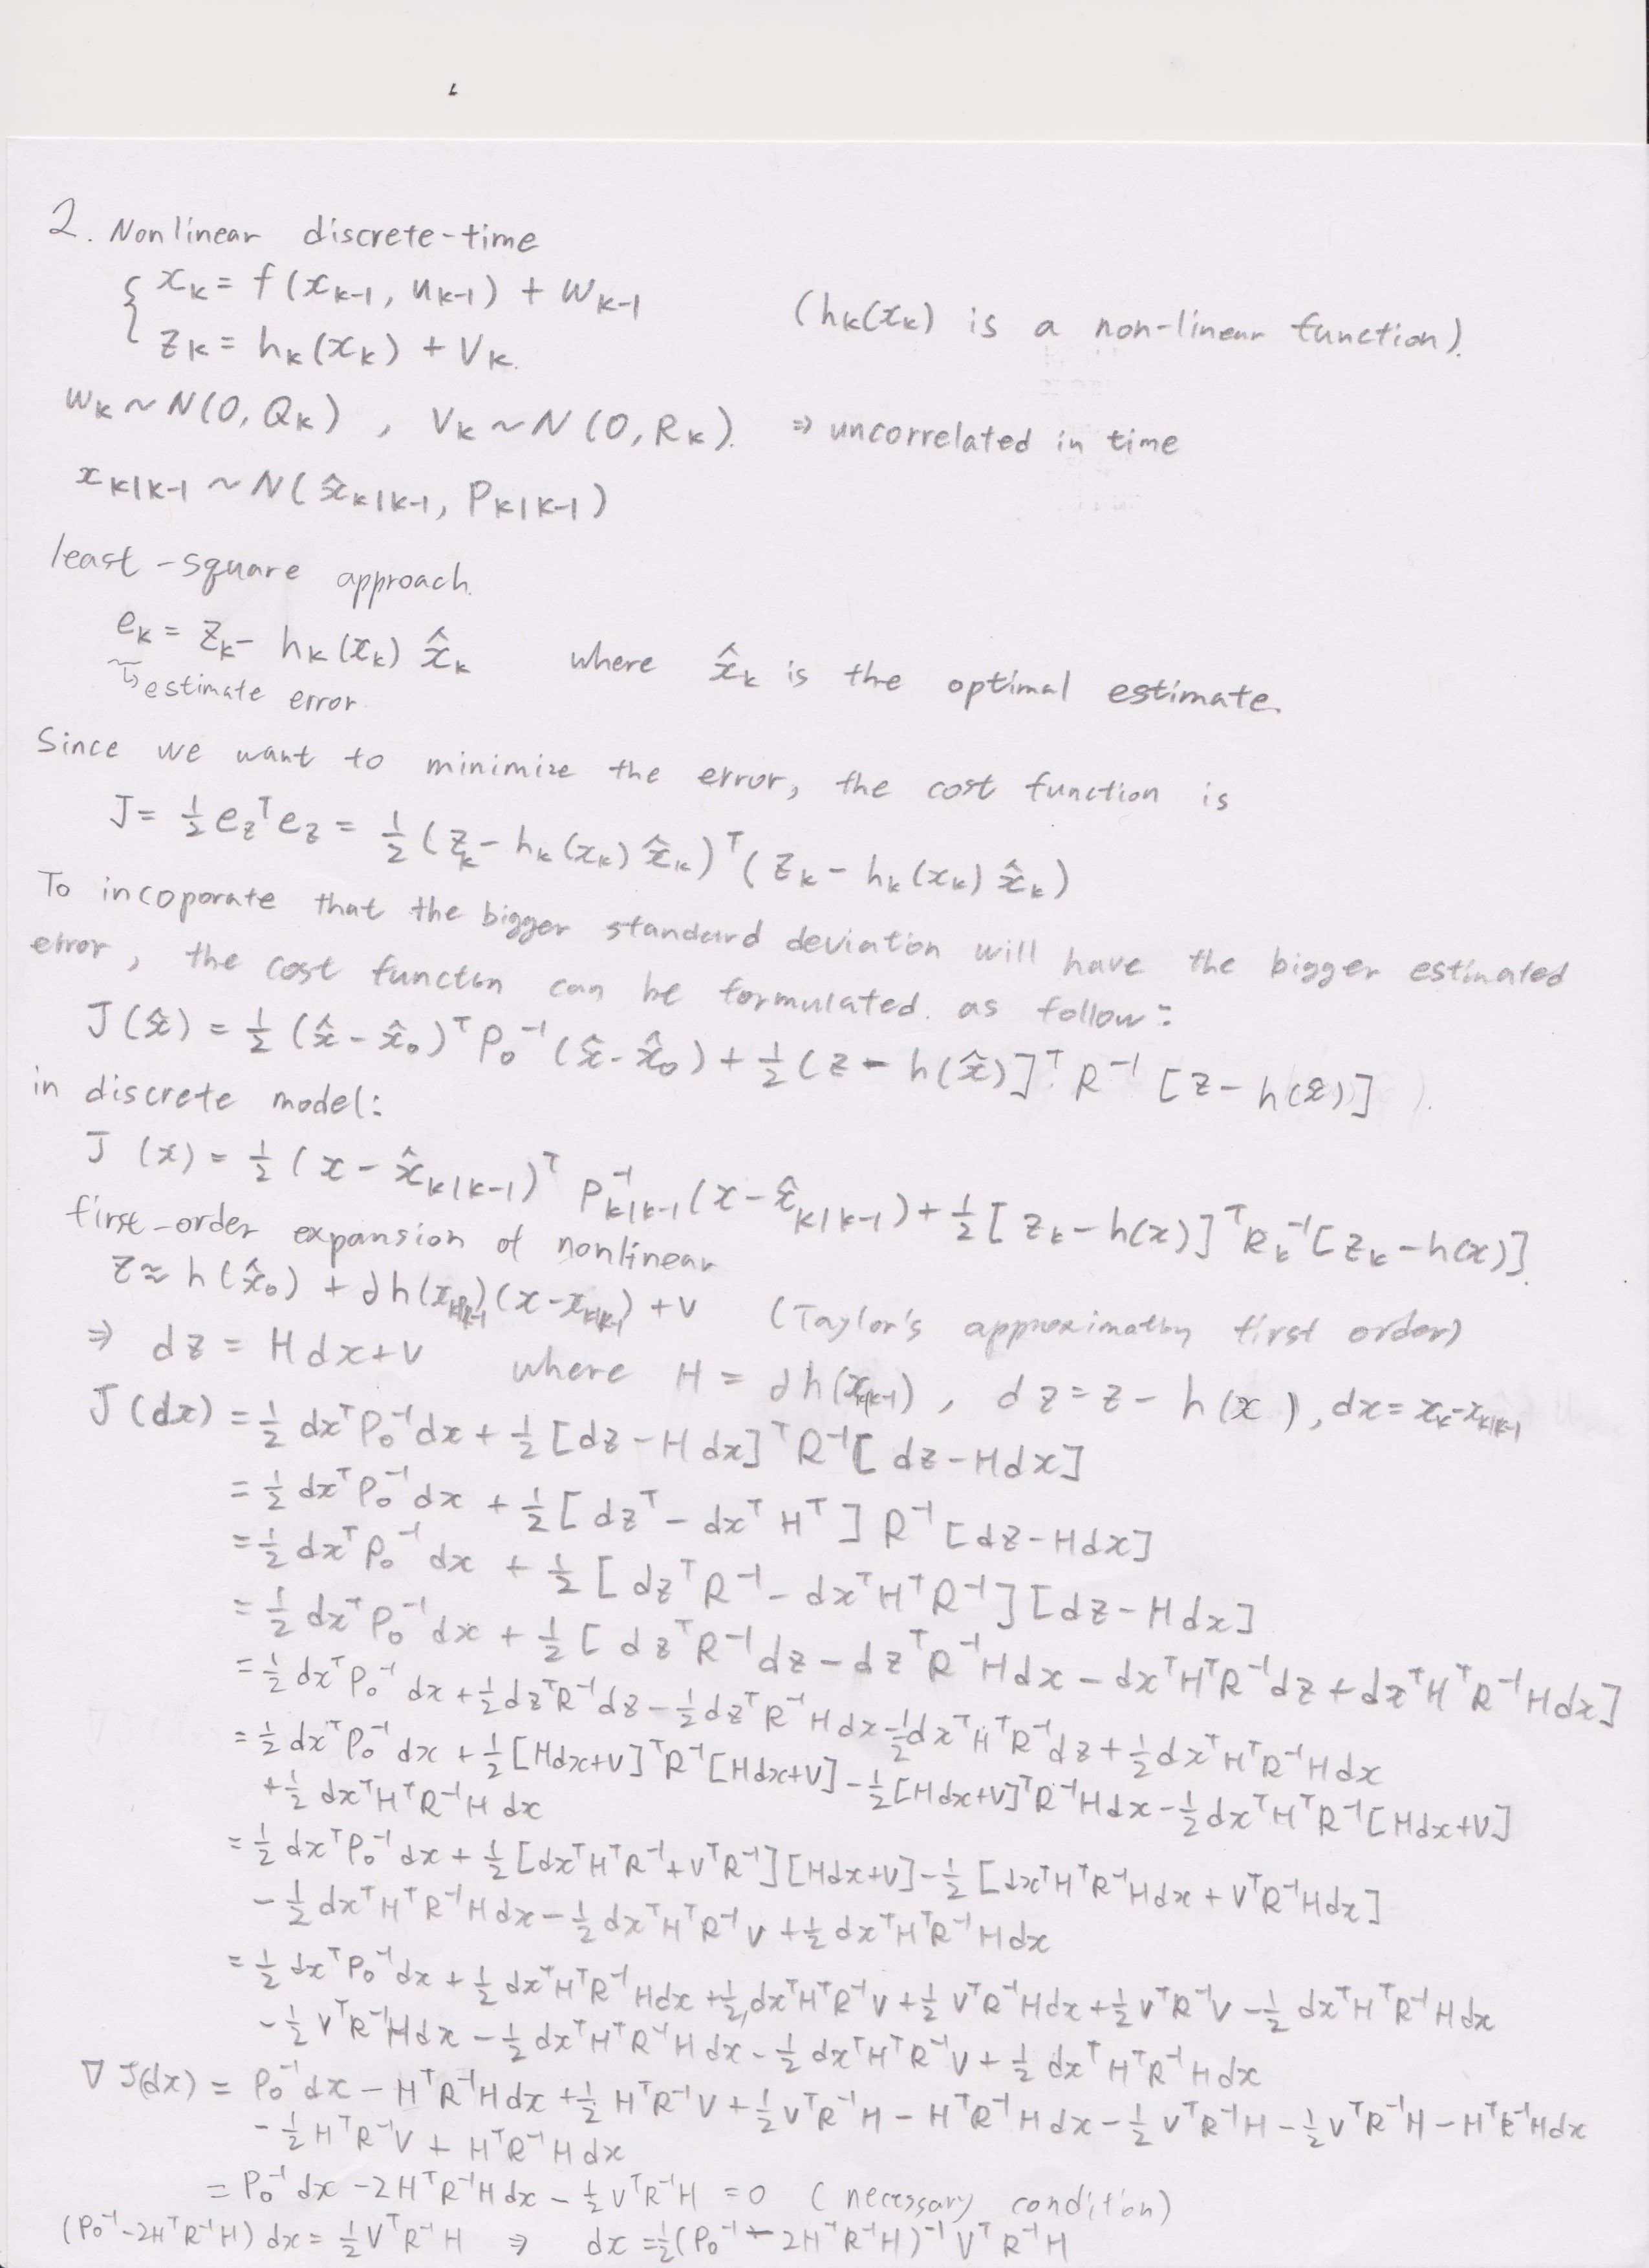 2. Nonlinear discrete-time
{ x_k = f(x_{k-1}, u_{k-1}) + w_{k-1}
z_k = h_k(x_k) + v_k. (h_k(x_k) is a non-linear function).
w_k ~ N(0, Q_k) , v_k ~ N(0, R_k). ⇒ uncorrelated in time
x_{k|k-1} ~ N(x̂_{k|k-1}, P_{k|k-1})
least-square approach.
e_k = z_k - h_k(x_k) x̂_k where x̂_k is the optimal estimate.
↳ estimate error.
Since we want to minimize the error, the cost function is
J = ½ e_z^T e_z = ½ (z_k - h_k(x_k) x̂_k)^T (z_k - h_k(x_k) x̂_k)
To incoporate that the bigger standard deviation will have the bigger estimated
error, the cost functon can be formulated. as follow:
J(x̂) = ½ (x̂ - x̂_0)^T P_0^{-1} (x̂ - x̂_0) + ½ (z - h(x̂)]^T R^{-1} [z - h(x̂)]
in discrete model:
J (x) = ½ (x - x̂_{k|k-1})^T P_{k|k-1}^{-1} (x - x̂_{k|k-1}) + ½ [z_k - h(x)]^T R_k^{-1} [z_k - h(x)].
first-order expansion of nonlinear
z ≈ h(x̂_0) + ∂h(x_{k|k-1})(x - x_{k|k-1}) + v (Taylor's approximation first order)
⇒ dz = H dx + v where H = ∂h(x_{k|k-1}) , dz = z - h(x), dx = x_k - x_{k|k-1}
J(dx) = ½ dx^T P_0^{-1} dx + ½ [dz - H dx]^T R^{-1} [dz - H dx]
= ½ dx^T P_0^{-1} dx + ½ [dz^T - dx^T H^T] R^{-1} [dz - H dx]
= ½ dx^T P_0^{-1} dx + ½ [dz^T R^{-1} - dx^T H^T R^{-1}] [dz - H dx]
= ½ dx^T P_0^{-1} dx + ½ [dz^T R^{-1} dz - dz^T R^{-1} H dx - dx^T H^T R^{-1} dz + dx^T H^T R^{-1} H dx]
= ½ dx^T P_0^{-1} dx + ½ dz^T R^{-1} dz - ½ dz^T R^{-1} H dx - ½ dx^T H^T R^{-1} dz + ½ dx^T H^T R^{-1} H dx
= ½ dx^T P_0^{-1} dx + ½ [Hdx+v]^T R^{-1} [Hdx+v] - ½ [Hdx+v]^T R^{-1} H dx - ½ dx^T H^T R^{-1} [Hdx+v]
+ ½ dx^T H^T R^{-1} H dx
= ½ dx^T P_0^{-1} dx + ½ [dx^T H^T R^{-1} + v^T R^{-1}] [Hdx+v] - ½ [dx^T H^T R^{-1} H dx + v^T R^{-1} H dx]
- ½ dx^T H^T R^{-1} H dx - ½ dx^T H^T R^{-1} v + ½ dx^T H^T R^{-1} H dx
= ½ dx^T P_0^{-1} dx + ½ dx^T H^T R^{-1} H dx + ½ dx^T H^T R^{-1} v + ½ v^T R^{-1} H dx + ½ v^T R^{-1} v - ½ dx^T H^T R^{-1} H dx
- ½ v^T R^{-1} H dx - ½ dx^T H^T R^{-1} H dx - ½ dx^T H^T R^{-1} v + ½ dx^T H^T R^{-1} H dx
∇J(dx) = P_0^{-1} dx - H^T R^{-1} H dx + ½ H^T R^{-1} v + ½ v^T R^{-1} H - H^T R^{-1} H dx - ½ v^T R^{-1} H - ½ v^T R^{-1} H - H^T R^{-1} H dx
- ½ H^T R^{-1} v + H^T R^{-1} H dx
= P_0^{-1} dx - 2 H^T R^{-1} H dx - ½ v^T R^{-1} H = 0 (necessary condition)
(P_0^{-1} - 2H^T R^{-1} H) dx = ½ v^T R^{-1} H ⇒ dx = ½ (P_0^{-1} - 2H^T R^{-1} H)^{-1} v^T R^{-1} H